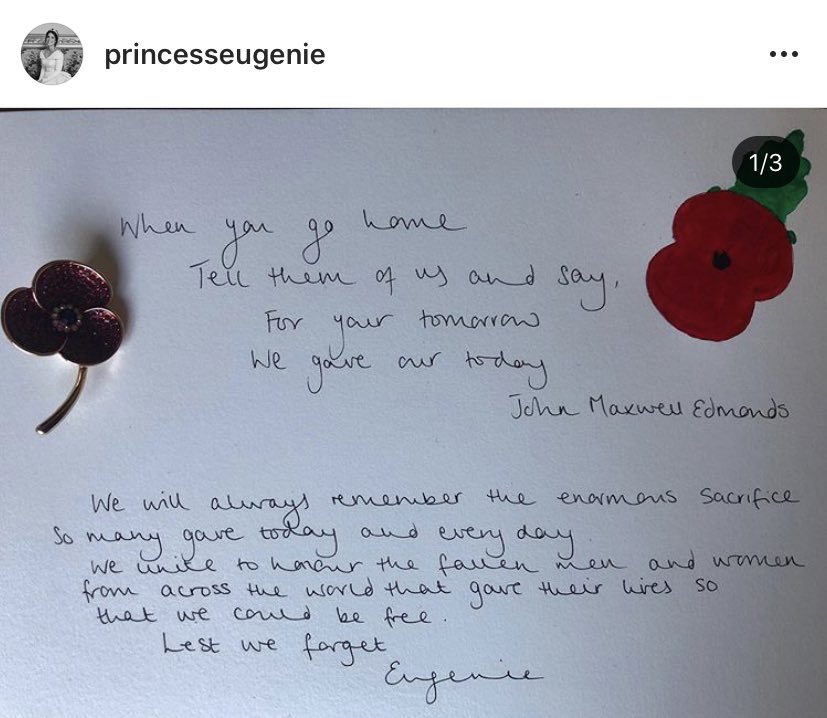 princesseugenie
1/3
When you go home
Tell them of us and say,
For your tomorrow
We gave our today
John Maxwell Edmonds
We will always remember the enormous sacrifice
so many gave today and every day.
We unite to honour the fallen men and women
from across the world that gave their lives so
that we could be free.
Lest we forget
Eugenie